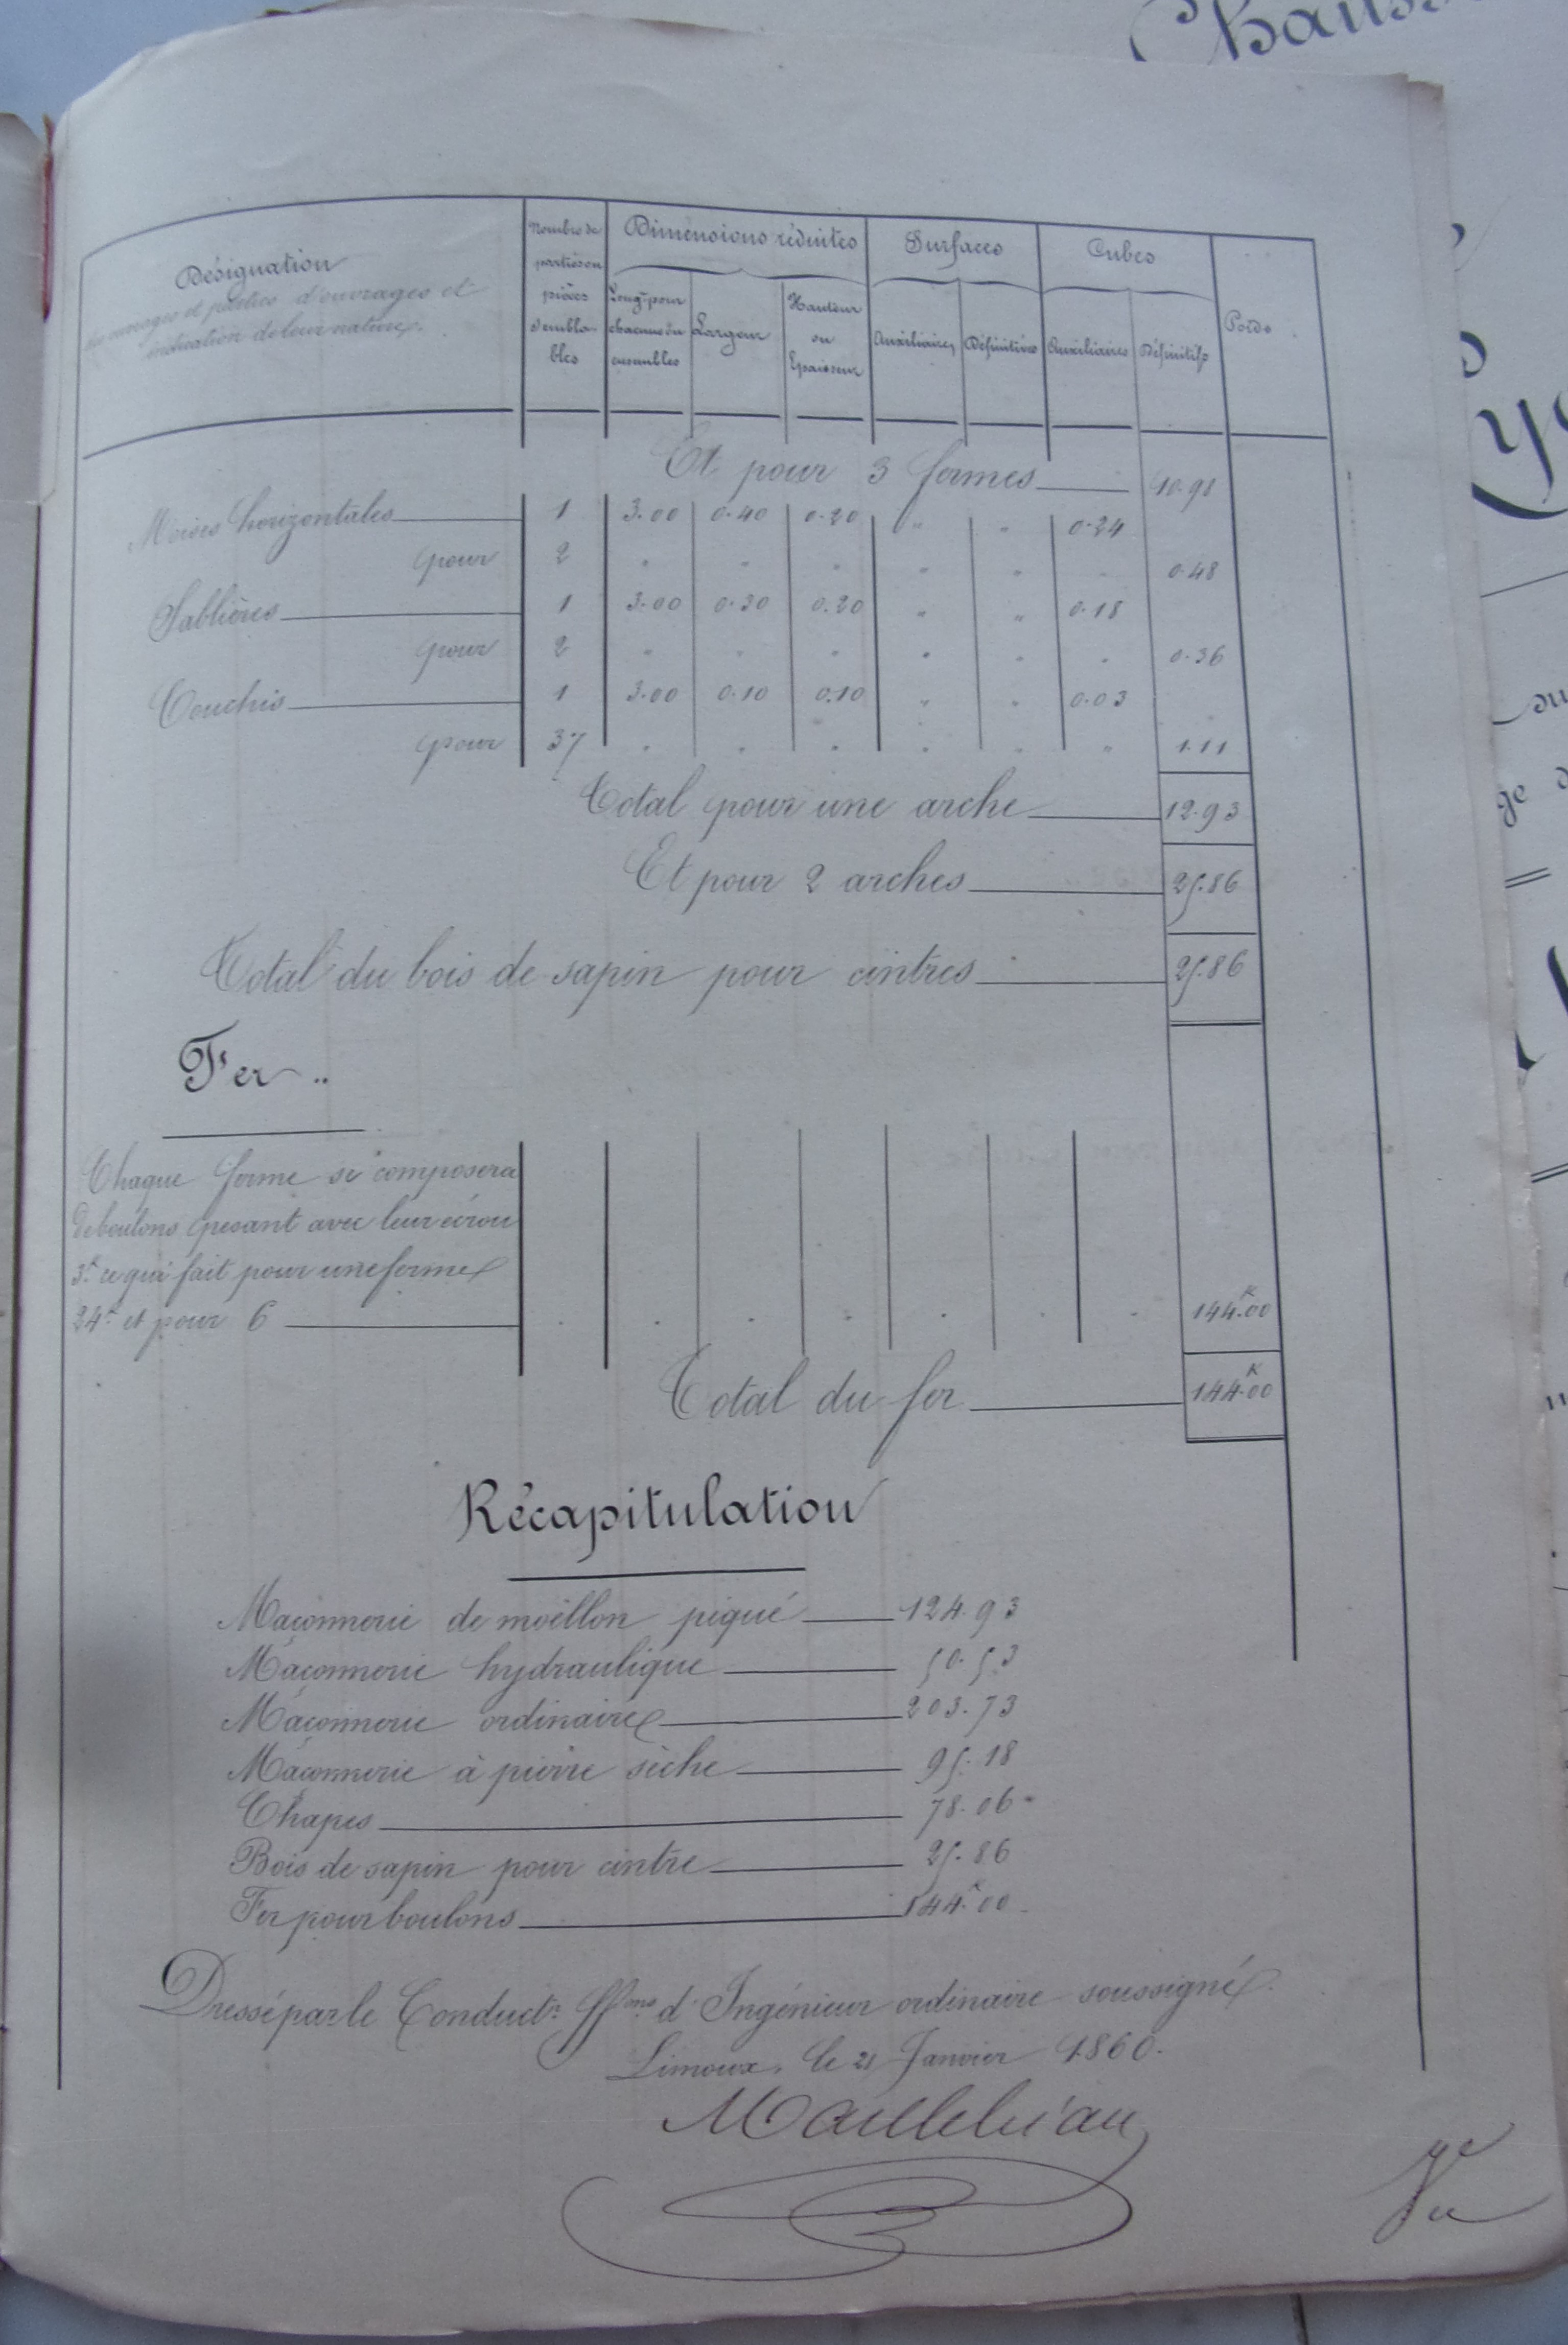 Désignation
des ouvrages et parties d'ouvrages et
indication de leur nature.
Nombre de
parties ou
pièces
sembla-
bles
Dimensions réduites
Longr pour
chacune ou
ensembles
Largeur
Hauteur
ou
Epaisseur
Surfaces
Auxiliaires
Définitives
Cubes
Auxiliaires
Définitifs
Poids
Et pour 3 fermes 10.98
Moises horizontales 1 3.00 0.40 0.20 " " 0.24
pour 2 " " " " " " 0.48
Sablières 1 3.00 0.30 0.20 " " 0.18
pour 2 " " " " " " 0.36
Couchis 1 3.00 0.10 0.10 " " 0.03
pour 37 " " " " " " 1.11
Total pour une arche 12.93
Et pour 2 arches 25.86
Total du bois de sapin pour cintres 25.86
Fer
Chaque ferme se composera
de boulons pesant avec leur écrou
3k ce qui fait pour une ferme
24k et pour 6 144k.00
Total du fer 144k.00
Récapitulation
Maçonnerie de moëllon piqué 124.93
Maçonnerie hydraulique 50.53
Maçonnerie ordinaire 203.73
Maçonnerie à pierre sèche 95.18
Chapes 78.06
Bois de sapin pour cintre 25.86
Fer pour boulons 144k.00
Dressé par le Conductr ffons d'Ingénieur ordinaire soussigné.
Limoux, le 21 Janvier 1860.
Vu